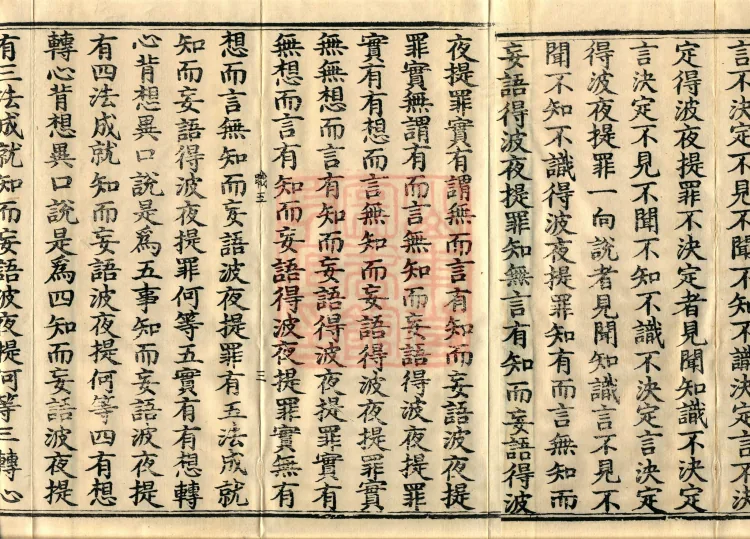 言不決定不見不聞不知不識決定言不決
定得波夜提罪不決定者見聞知識不決定
言決定不見不聞不知不識不決定言決定
得波夜提罪一向說者見聞知識言不見不
聞不知不識得波夜提罪知有而言無知而
妄語得波夜提罪知無言有知而妄語得波
夜提罪實有謂無而言有知而妄語波夜提
罪實無謂有而言無知而妄語得波夜提罪
實有有想而言無知而妄語得波夜提罪實
無無想而言有知而妄語得波夜提罪實有
無想而言有知而妄語得波夜提罪實無有
職五 三
想而言無知而妄語波夜提罪有五法成就
知而妄語得波夜提罪何等五實有有想轉
心背想異口說是為五事知而妄語波夜提
有四法成就知而妄語波夜提何等四有想
轉心背想異口說是為四知而妄語波夜提
有三法成就知而妄語波夜提何等三轉心